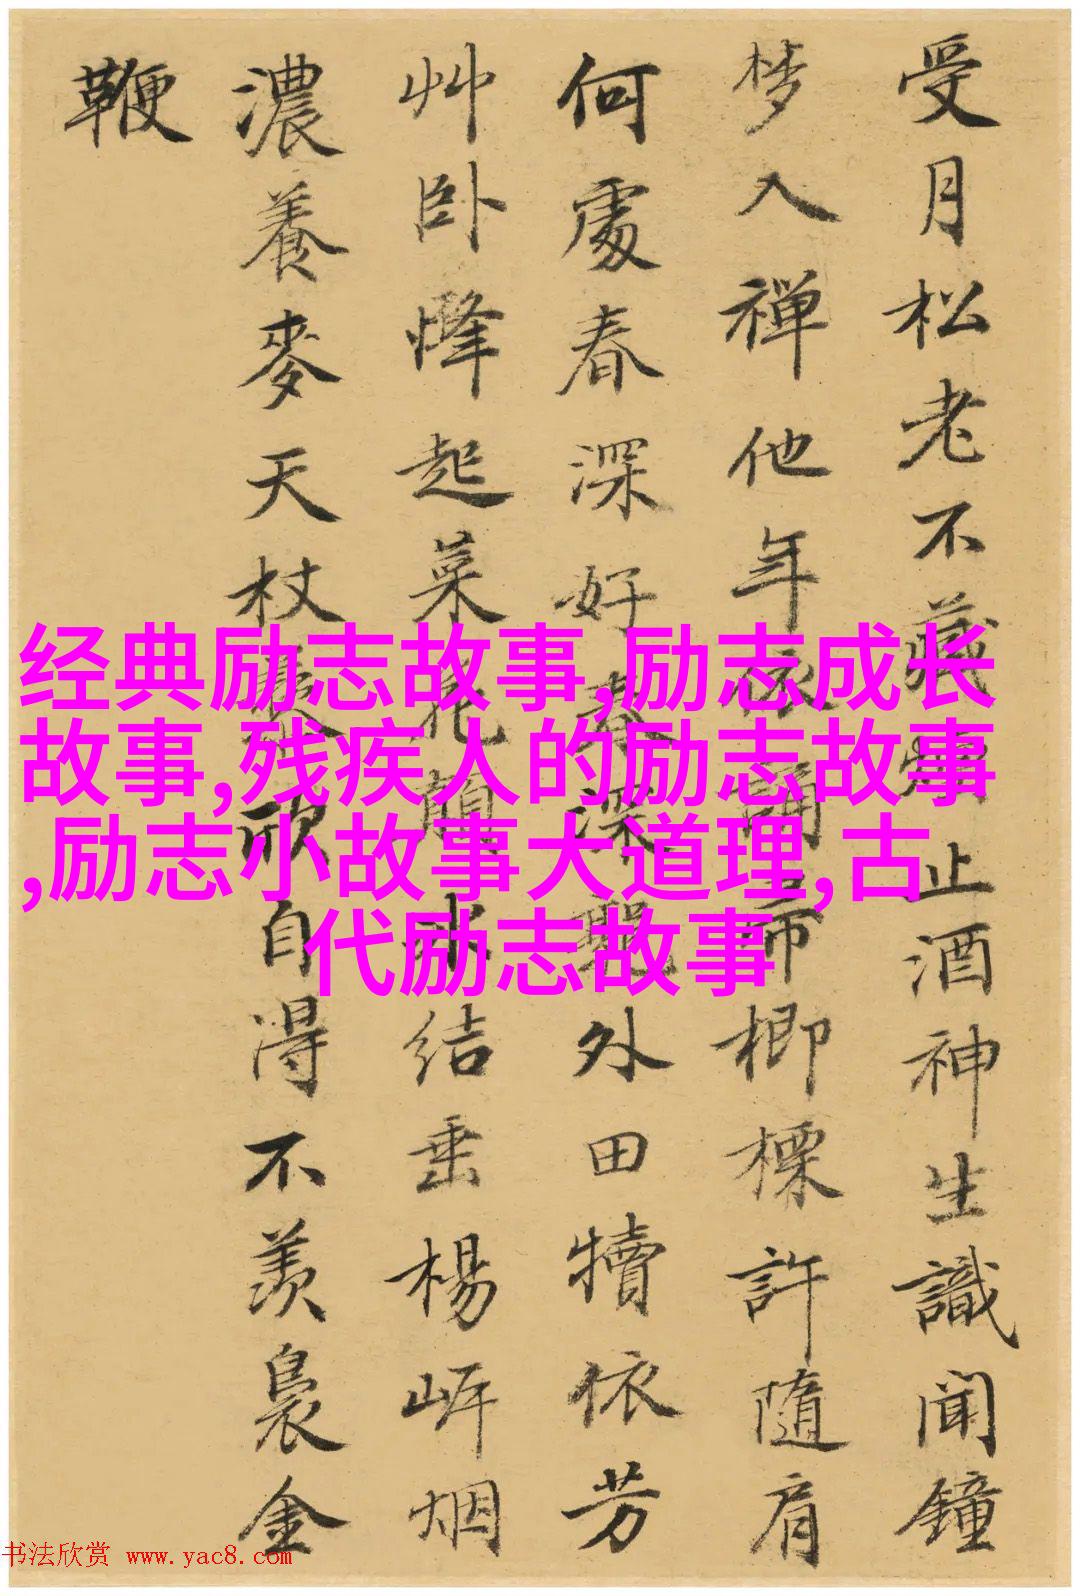 受月松老不藏止酒神生識聞鐘
梦入禅他年依楖標許隨肩
何處春深好春深野外田犢依芳
艸卧起菜花顛水結垂楊岍烟
濃養麥天杖藜欣自得不羨裊金
鞭
经典励志故事,励志成长
故事,残疾人的励志故事
,励志小故事大道理,古
代励志故事
书法欣赏 www.yac8.com